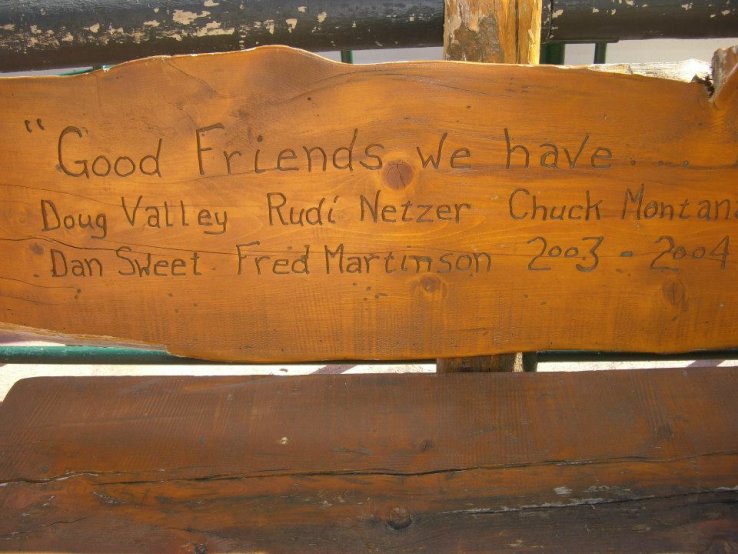 "Good Friends we have....
Doug Vatley Rudi Netzer Chuck Montana
Dan Sweet Fred Martinson 2003 - 2004